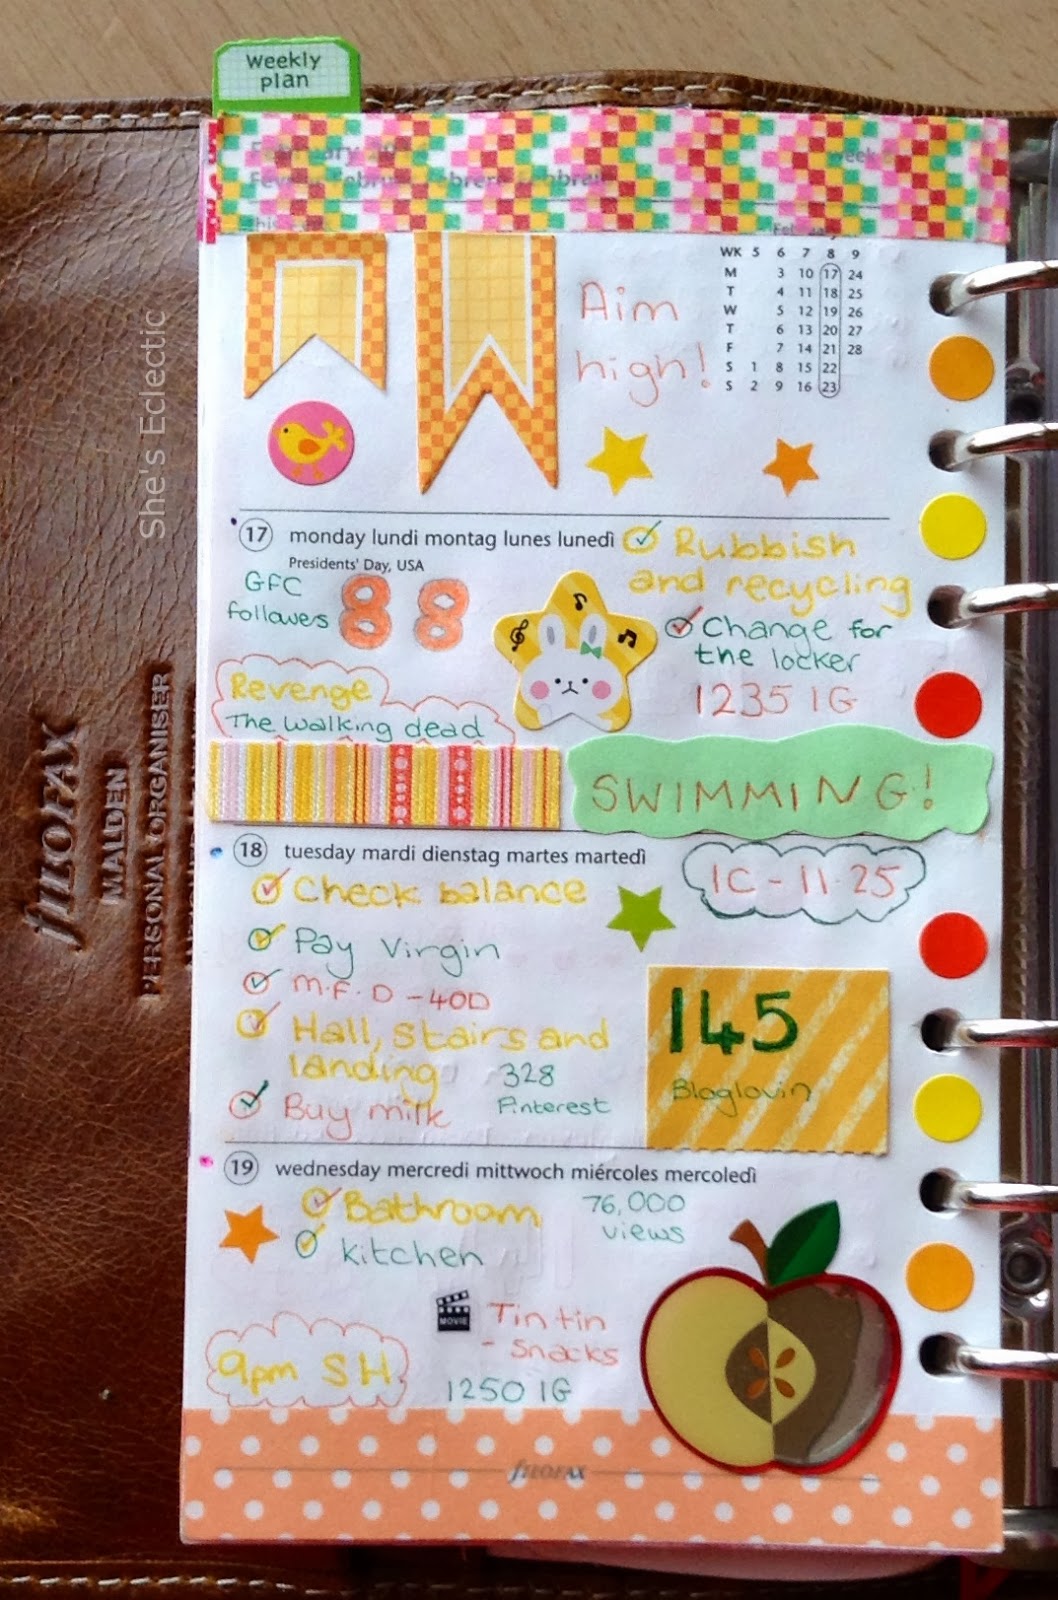 Weekly
plan
week
WK 5 6 7 8 9
M 3 10 17 24
T 4 11 18 25
W 5 12 19 26
T 6 13 20 27
F 7 14 21 28
S 1 8 15 22
S 2 9 16 23
Aim
high!
She's Eclectic
17 monday lundi montag lunes lunedì
Presidents' Day, USA
GFC
followes
88
Rubbish
and recycling
Change for
the locker
1235 IG
Revenge
The walking dead
SWIMMING!
18 tuesday mardi dienstag martes martedì
1C - 11.25
Check balance
Pay Virgin
M.F.D - 40D
Hall, stairs and
landing
Buy milk
328
Pinterest
145
Bloglovin
19 wednesday mercredi mittwoch miércoles mercoledì
Bathroom
kitchen
76,000
views
MOVIE
Tintin
- Snacks
9pm SH
1250 IG
fILOFAX
fILOFAX
MALDEN
PERSONAL ORGANISER